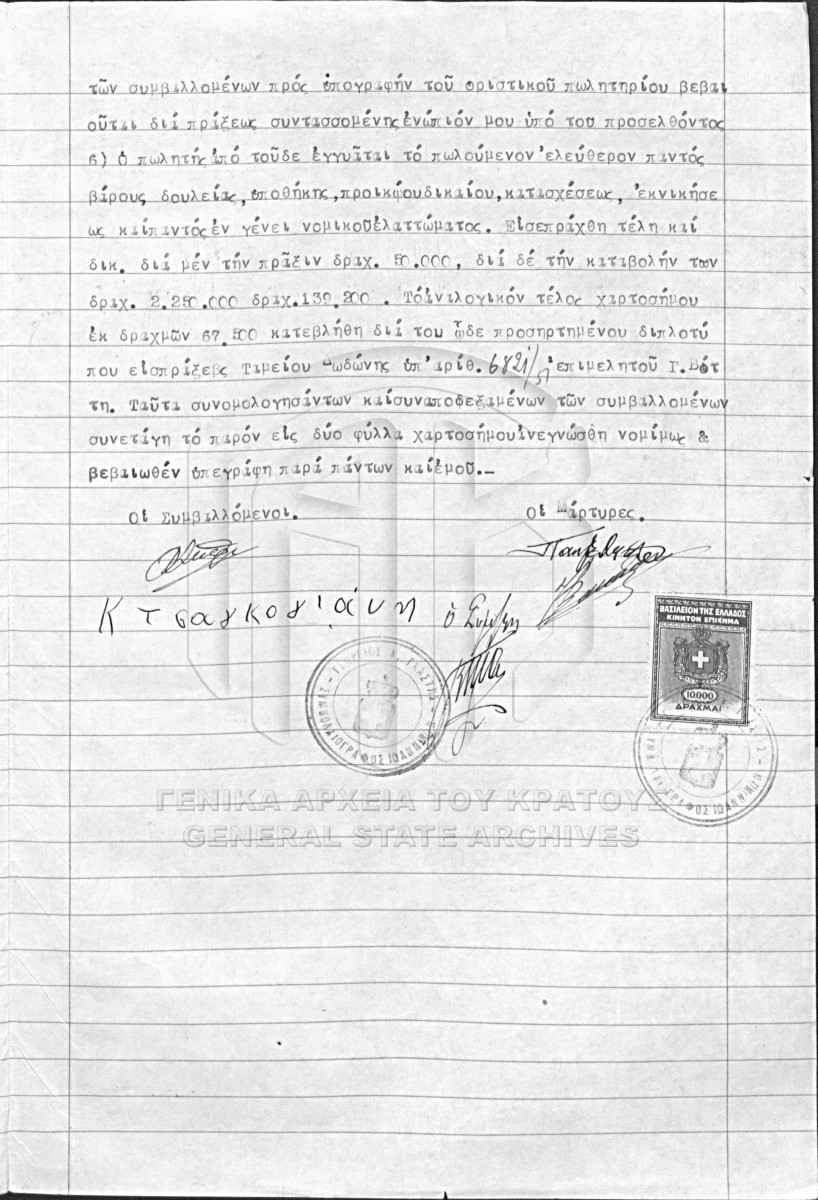 τῶν συμβαλλομένων πρός ὑπογραφήν τοῦ οριστικοῦ πωλητηρίου βεβαι
οῦται διά πράξεως συντασσομένης ἐνώπιόν μου ὑπό του προσελθόντος
6) ὁ πωλητής ἀπό τοῦδε ἐγγυᾶται τό πωλούμενον ἐλεύθερον παντός
βάρους δουλείας, ὑποθήκης, προικώου δικαίου, κατασχέσεως, ἐκνικήσε
ως καί παντός ἐν γένει νομικοῦ ἐλαττώματος. Εἰσεπράχθη τέλη καί
δικ. διά μέν τήν πρᾶξιν δραχ. 50.000, διά δέ τήν καταβολήν των
δραχ. 2.250.000 δραχ. 139.200 . Τό ἀναλογικόν τέλος χαρτοσήμου
ἐκ δραχμῶν 67.500 κατεβλήθη διά του ὧδε προσηρτημένου διπλοτύ
που εἰσπράξεως Ταμείου Δωδώνης ὑπ' ἀριθ. 6821/51 ἐπιμελητοῦ Γ. Βότ
τη. Ταῦτα συνομολογησάντων καί συναποδεξαμένων τῶν συμβαλλομένων
συνετάγη τό παρόν εἰς δύο φύλλα χαρτοσήμου ἀνεγνώσθη νομίμως &
βεβαιωθέν ὑπεγράφη παρά πάντων καί ἐμοῦ.—
Οἱ Συμβαλλόμενοι.
Οἱ Μάρτυρες.
Κ Τσαγκογιάνη
ΒΑΣΙΛΕΙΟΝ ΤΗΣ ΕΛΛΑΔΟΣ
ΚΙΝΗΤΟΝ ΕΠΙΣΗΜΑ
10.000
ΔΡΑΧΜΑΙ
ΣΥΜΒΟΛΑΙΟΓΡΑΦΟΣ ΙΩΑΝΝΙΝΩΝ
ΓΕΝΙΚΑ ΑΡΧΕΙΑ ΤΟΥ ΚΡΑΤΟΥΣ
GENERAL STATE ARCHIVES